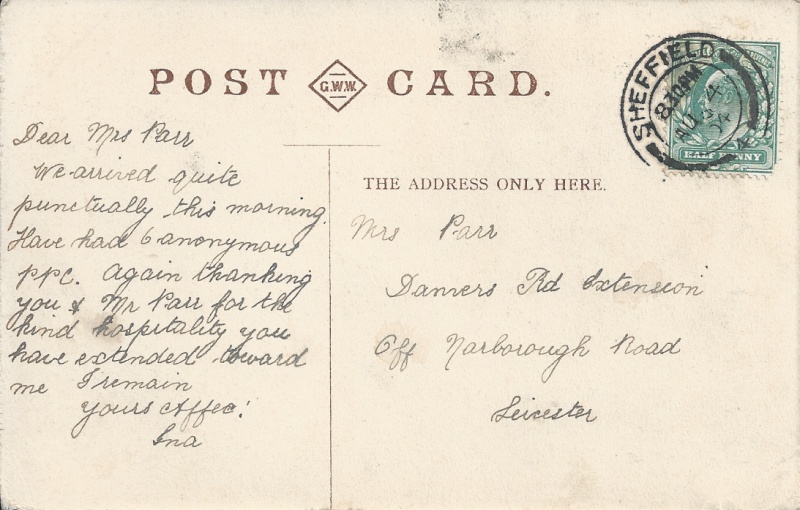 POST G.W.W. CARD.
Dear Mrs Parr
We arrived quite
punctually this morning.
Have had 6 anonymous
ppc. Again thanking
you & Mr Parr for the
kind hospitality you
have extended toward
me I remain
Yours Affec!
Ina
THE ADDRESS ONLY HERE.
Mrs Parr
Danvers Rd Extension
Off Narborough Road
Leicester
SHEFFIELD
8.30AM
AU 4
HALFPENNY